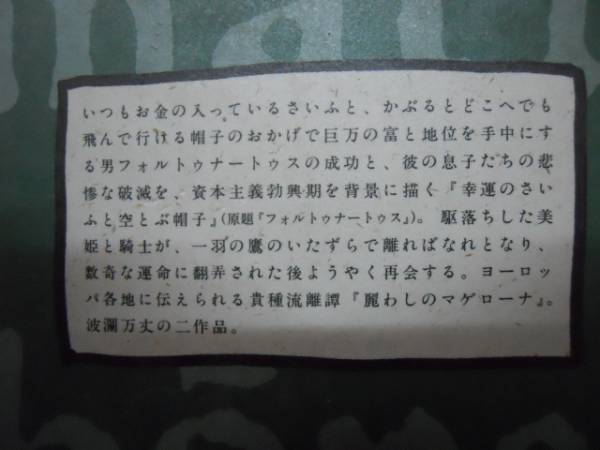 いつもお金の入っているさいふと、かぶるとどこへでも
飛んで行ける帽子のおかげで巨万の富と地位を手中にす
る男フォルトゥナートゥスの成功と、彼の息子たちの悲
惨な破滅を、資本主義勃興期を背景に描く『幸運のさい
ふと空とぶ帽子』(原題『フォルトゥナートゥス』)。駆落ちした美
姫と騎士が、一羽の鷹のいたずらで離ればなれとなり、
数奇な運命に翻弄された後ようやく再会する。ヨーロッ
パ各地に伝えられる貴種流離譚『麗わしのマゲローナ』。
波瀾万丈の二作品。